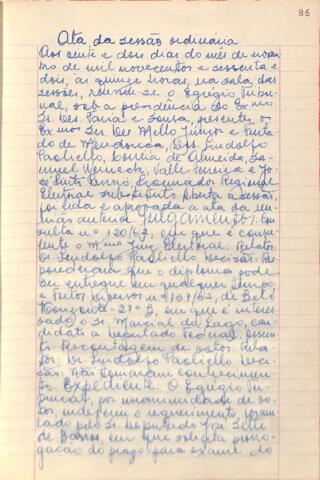 86
Ata da sessão ordinária
Aos vinte e dois dias do mês de novem
bro de mil novecentos e sessenta e
dois, às quinze horas, na sala das
sessões, reuniu-se o Egrégio Tribu-
nal, sob a presidência do Exmo
Sr. Des. Faria e Sousa, presentes os
Exmos Srs. Des. Mello Júnior e Furta
do de Mendonça, Drs. Lindolfo
Paoliello, Correia de Almeida, Sa-
muel Werneck, Valle Ferreira e Jo-
sé Procurador Regional
Eleitoral Substituto. Aberta a sessão,
foi lida e aprovada a ata da reu-
nião anterior. Julgamento: Con
sulta nº 120/62, em que é consu
lente o Mmo Juiz Eleitoral: Relator
Dr. Lindolfo Paoliello. Decisão: Res
ponderam que o diploma pode
ser entregue em qualquer tempo;
e Feitos Diversos nº 167/62, de Belo
Horizonte - 27ª B, em que é interes
sado o Sr. Marcial do Lago, can
didato a Deputado Federal, assun
to: Recontagem de votos: Rela
tor: Dr. Lindolfo Paoliello. Deci
são: Não tomaram conhecimen
to. Expediente: O Egrégio Tri-
bunal, por unanimidade de vo-
tos, indeferiu o requerimento formu
lado pelo Sr. Deputado José
de Barros, em que solicita prorro-
gação do prazo para exame do